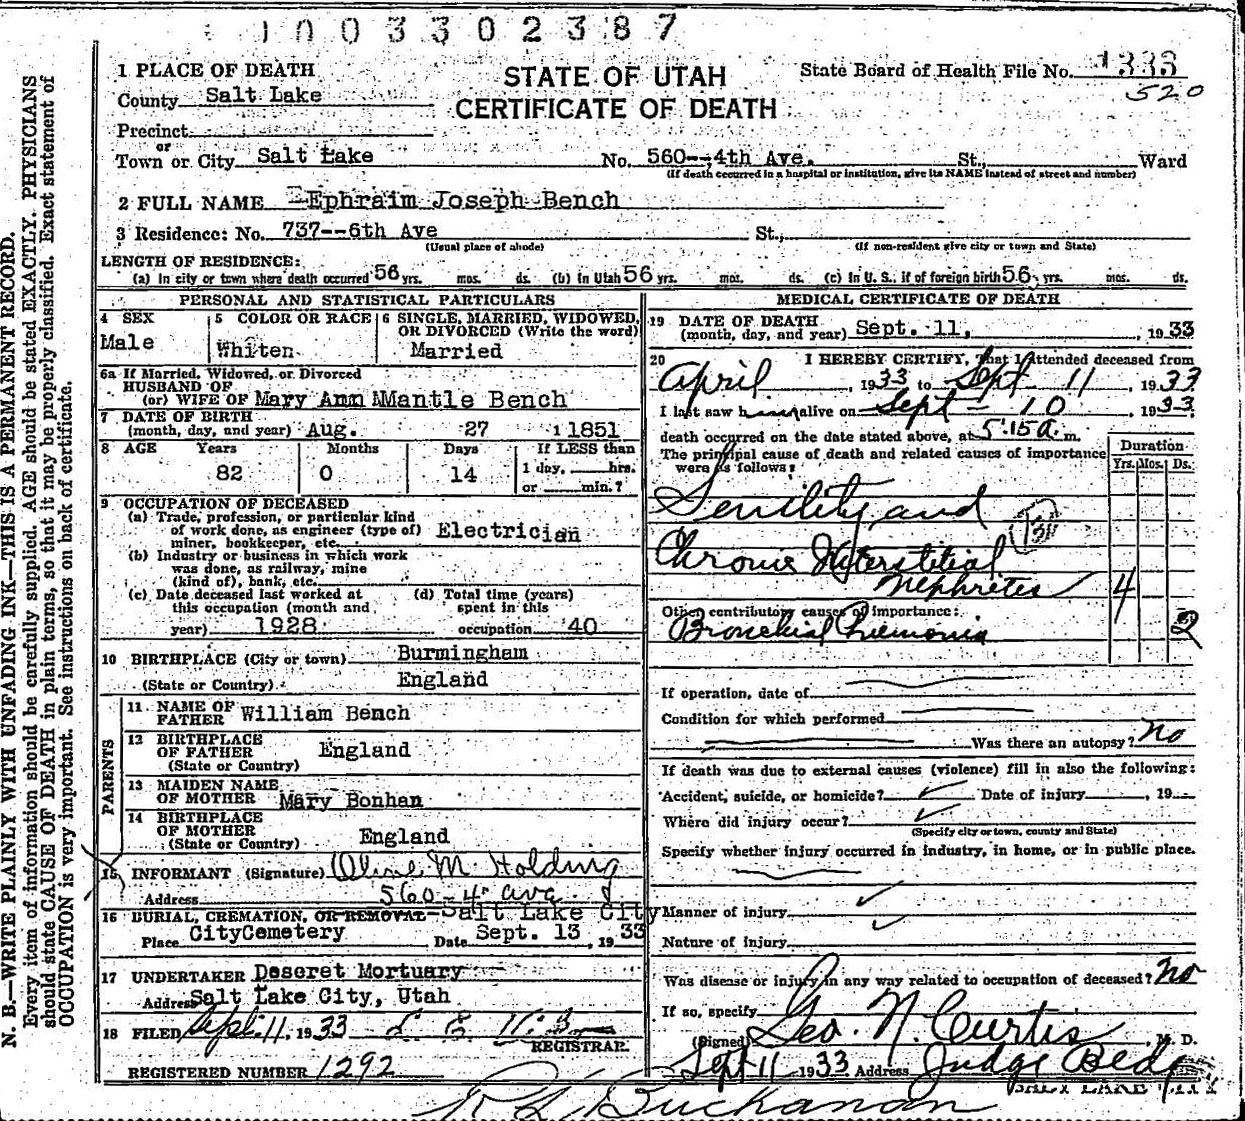 1003302387
1 PLACE OF DEATH
STATE OF UTAH
CERTIFICATE OF DEATH
State Board of Health File No. 1333
520
County Salt Lake
Precinct
or
Town or City Salt Lake No. 560--4th Ave. St., Ward
(If death occurred in a hospital or institution, give its NAME instead of street and number)
2 FULL NAME Ephraim Joseph Bench
3 Residence: No. 737--6th Ave St.,
(Usual place of abode) (If non-resident give city or town and State)
LENGTH OF RESIDENCE:
(a) In city or town where death occurred 56 yrs. mos. ds. (b) in Utah 56 yrs. mos. ds. (c) In U. S., if of foreign birth 56 yrs. mos. ds.
PERSONAL AND STATISTICAL PARTICULARS
4 SEX
Male
5 COLOR OR RACE
Whiten
6 SINGLE, MARRIED, WIDOWED, OR DIVORCED (Write the word)
Married
6a If Married, Widowed, or Divorced
HUSBAND OF
(or) WIFE OF Mary Ann MMantle Bench
7 DATE OF BIRTH
(month, day, and year) Aug. 27 1 1851
8 AGE Years Months Days If LESS than
82 0 14 1 day, hrs.
or min.?
9 OCCUPATION OF DECEASED
(a) Trade, profession, or particular kind
of work done, as engineer (type of)
miner, bookkeeper, etc. Electrician
(b) Industry or business in which work
was done, as railway, mine
(kind of), bank, etc.
(c) Date deceased last worked at
this occupation (month and
year) 1928
(d) Total time (years)
spent in this
occupation 40
10 BIRTHPLACE (City or town) Burmingham
(State or Country) England
PARENTS
11 NAME OF
FATHER William Bench
12 BIRTHPLACE
OF FATHER England
(State or Country)
13 MAIDEN NAME
OF MOTHER Mary Bonhan
14 BIRTHPLACE
OF MOTHER England
(State or Country)
15 INFORMANT (Signature) Olive M. Holding
Address 560-4" ave
16 BURIAL, CREMATION, OR REMOVAL Salt Lake City
Place CityCemetery Date Sept. 13, 1933
17 UNDERTAKER Deseret Mortuary
Address Salt Lake City, Utah
18 FILED Sept. 11, 1933
REGISTRAR
REGISTERED NUMBER 1292
MEDICAL CERTIFICATE OF DEATH
19 DATE OF DEATH
(month, day, and year) Sept. 11, 1933
20 I HEREBY CERTIFY, That I attended deceased from
April, 1933 to Sept 11, 1933
I last saw him alive on Sept - 10, 1933
death occurred on the date stated above, at 5:15 a. m.
The principal cause of death and related causes of importance
were as follows:
Duration
Yrs. Mos. Ds.
Senility and
131
Chronic Interstitial
Nephrites 4
Other contributory causes of importance:
Bronchial Pnemonia 2
If operation, date of
Condition for which performed
Was there an autopsy? No
If death was due to external causes (violence) fill in also the following:
Accident, suicide, or homicide? Date of injury, 19
Where did injury occur?
(Specify city or town, county and State)
Specify whether injury occurred in industry, in home, or in public place.
Manner of injury
Nature of injury
Was disease or injury in any way related to occupation of deceased? No
If so, specify
(Signed) Geo. N. Curtis, M. D.
Sept 11 1933 Address Judge Bldg
SALT LAKE CITY
R L Buchanan
N. B.—WRITE PLAINLY WITH UNFADING INK—THIS IS A PERMANENT RECORD.
Every item of information should be carefully supplied. AGE should be stated EXACTLY. PHYSICIANS
should state CAUSE OF DEATH in plain terms, so that it may be properly classified. Exact statement of
OCCUPATION is very important. See instructions on back of certificate.